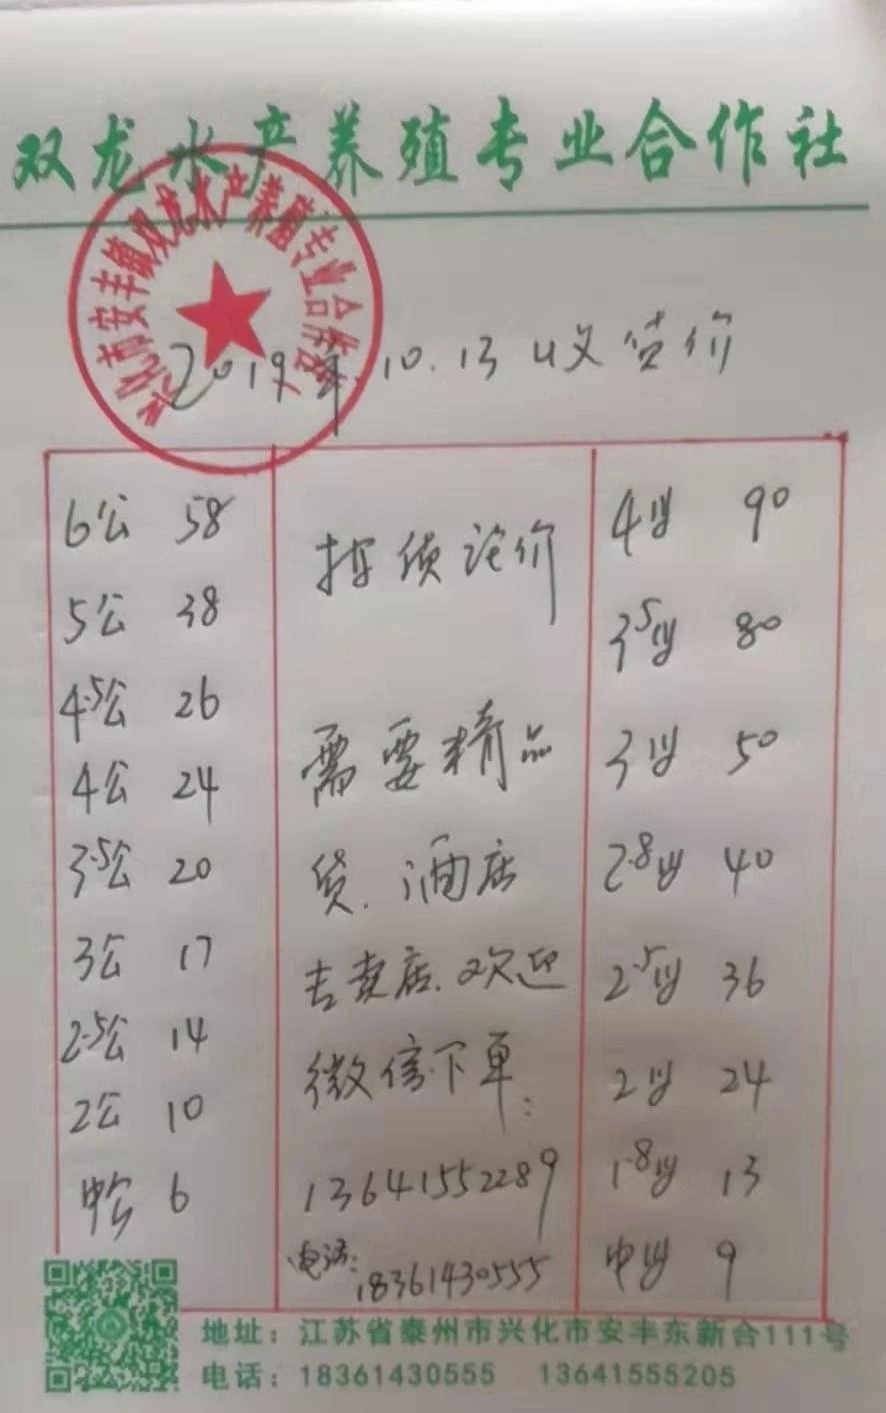 双龙水产养殖专业合作社
兴化市安丰镇双龙水产养殖专业合作社
2019年.10.13收货价
6公 58
5公 38
4.5公 26
4公 24
3.5公 20
3公 17
2.5公 14
2公 10
中公 6
按质论价
需要精品
货.酒店
专卖店.欢迎
微信下单:
13641552289
电话:
18361430555
4母 90
3.5母 80
3母 50
2.8母 40
2.5母 36
2母 24
1.8母 13
中母 9
地址：江苏省泰州市兴化市安丰东新合111号
电话：18361430555 13641555205